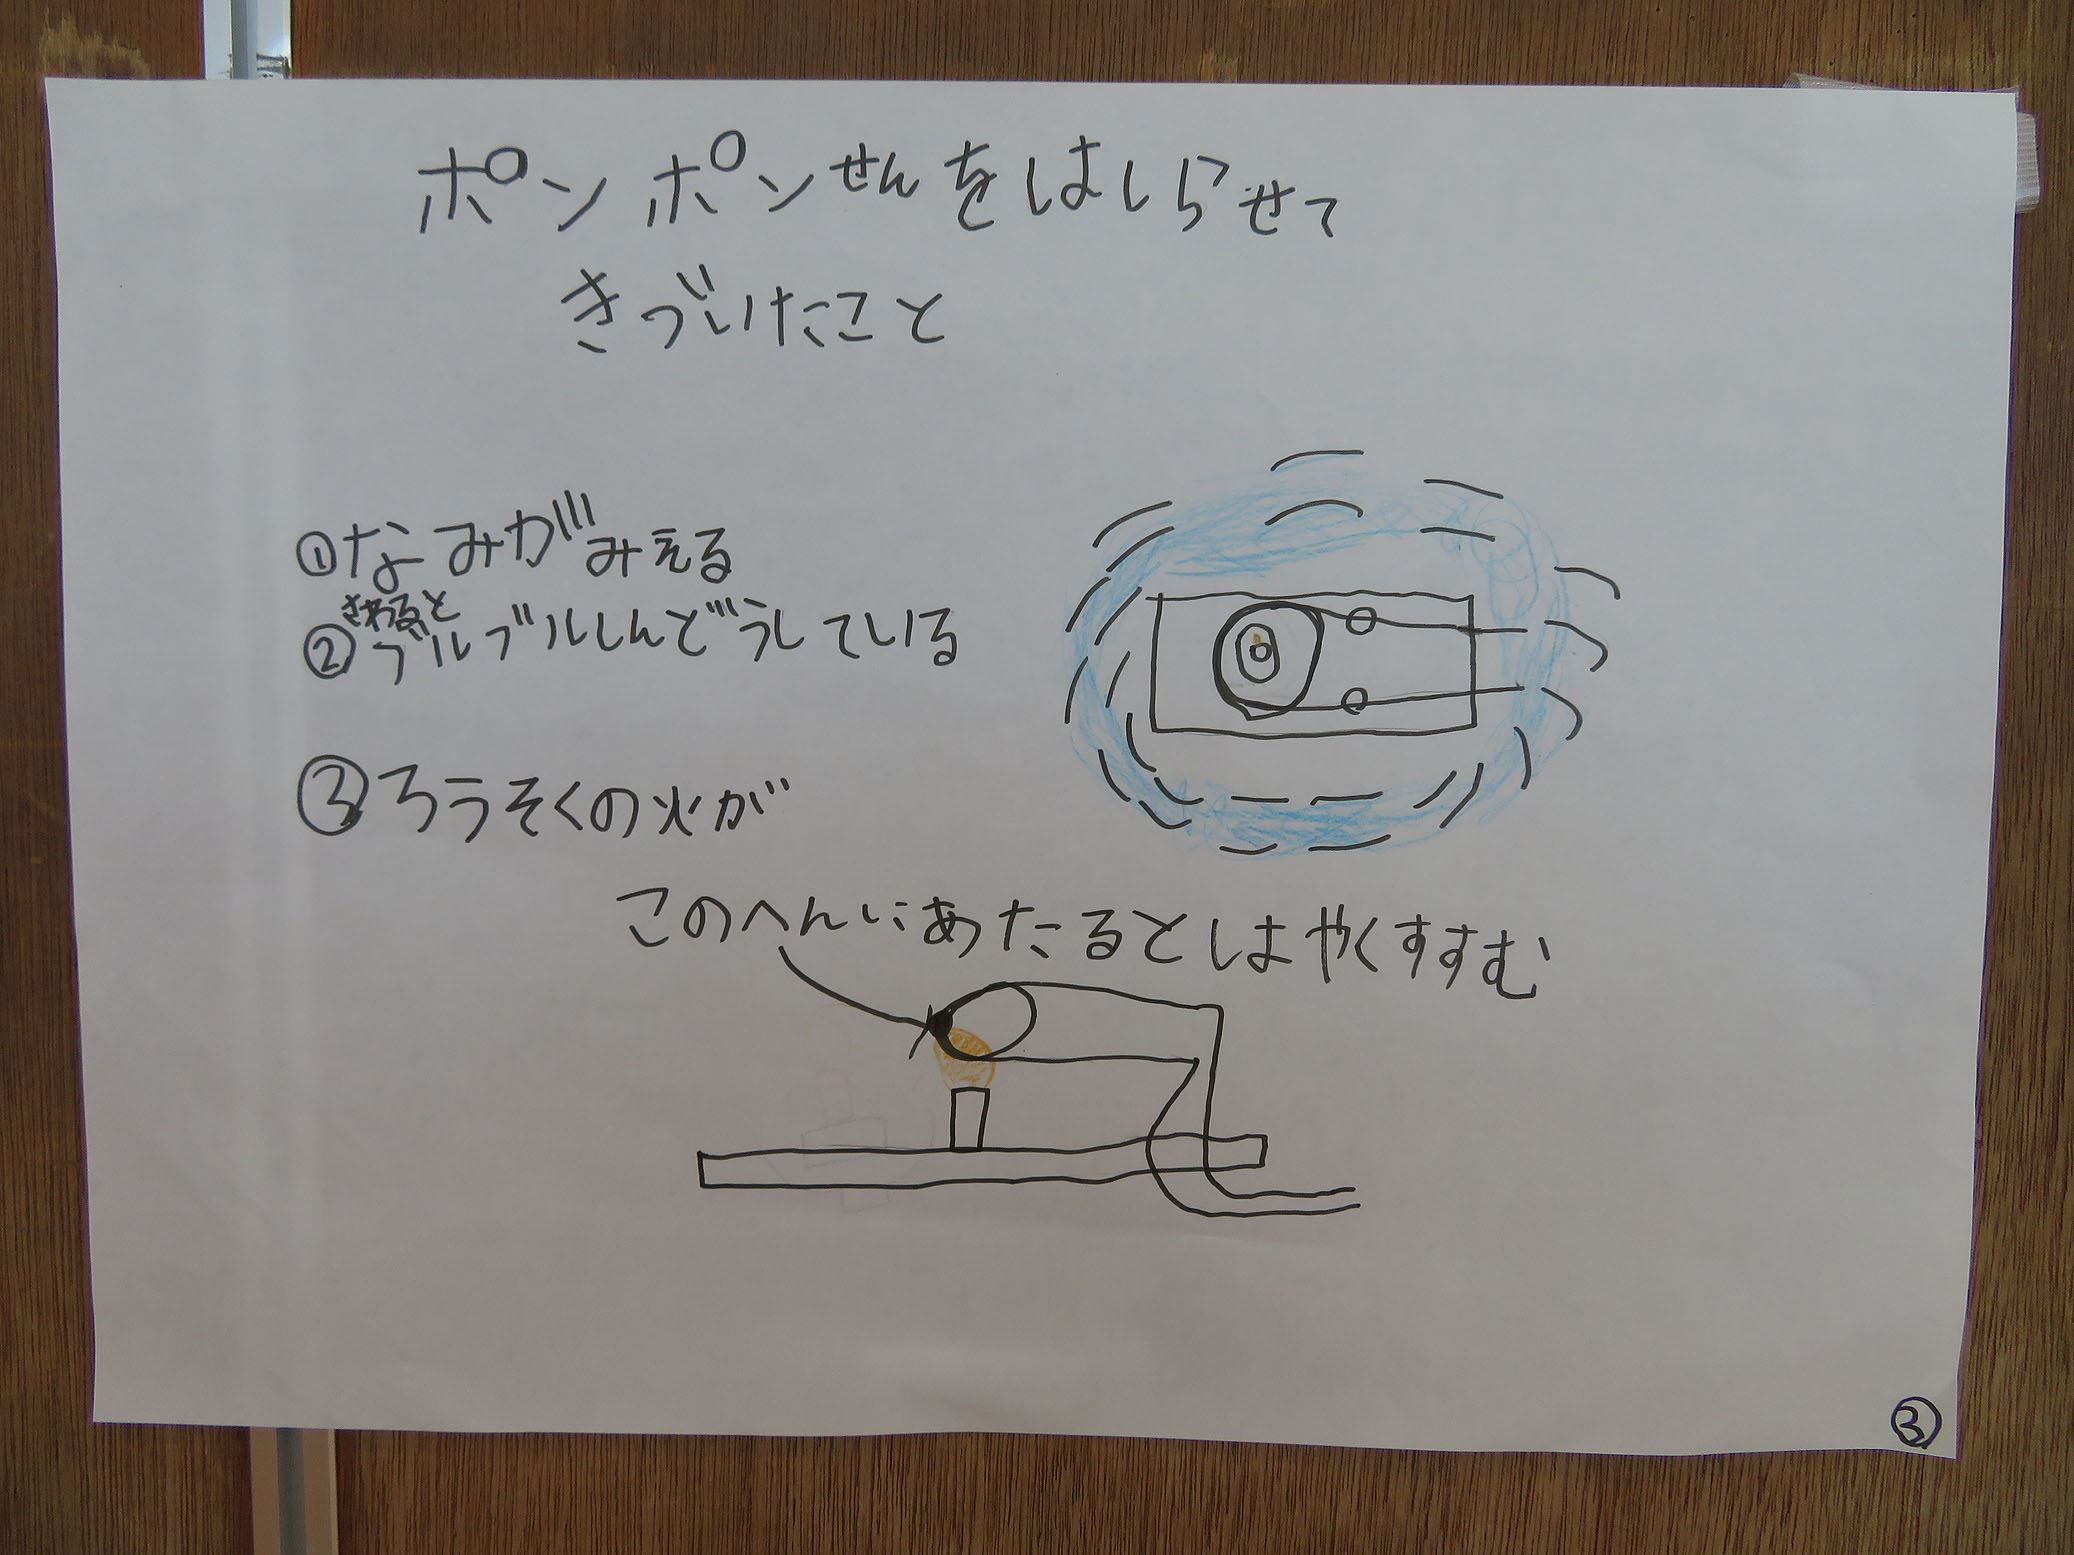 ポンポンせんをはしらせて
きづいたこと
①なみがみえる
さわると
②ブルブルしんどうしている
③ろうそくの火が
このへんにあたるとはやくすすむ
③